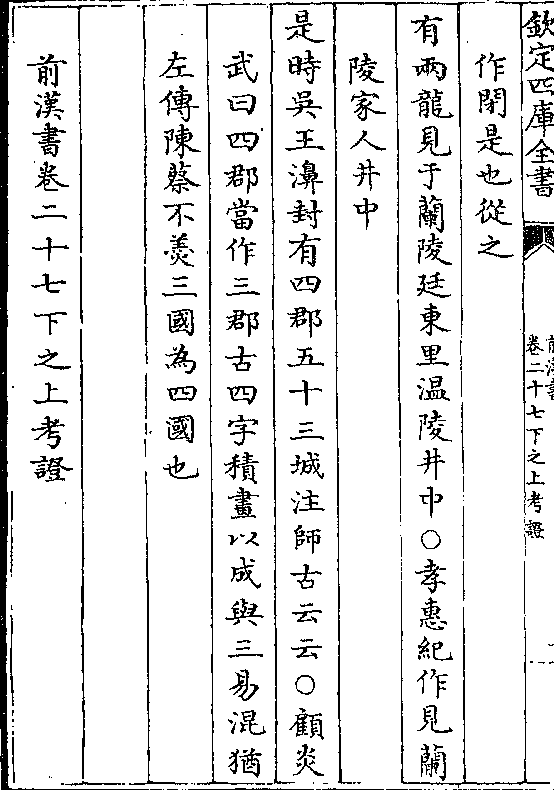 欽定四庫全書
前漢書
卷二十七下之上考證
作閉是也從之
有兩龍見于蘭陵廷東里温陵井中○孝惠紀作見蘭
陵家人井中
是時吳王濞封有四郡五十三城注師古云云○顧炎
武曰四郡當作三郡古四字積畫以成與三易混猶
左傳陳蔡不羮三國為四國也
前漢書卷二十七下之上考證